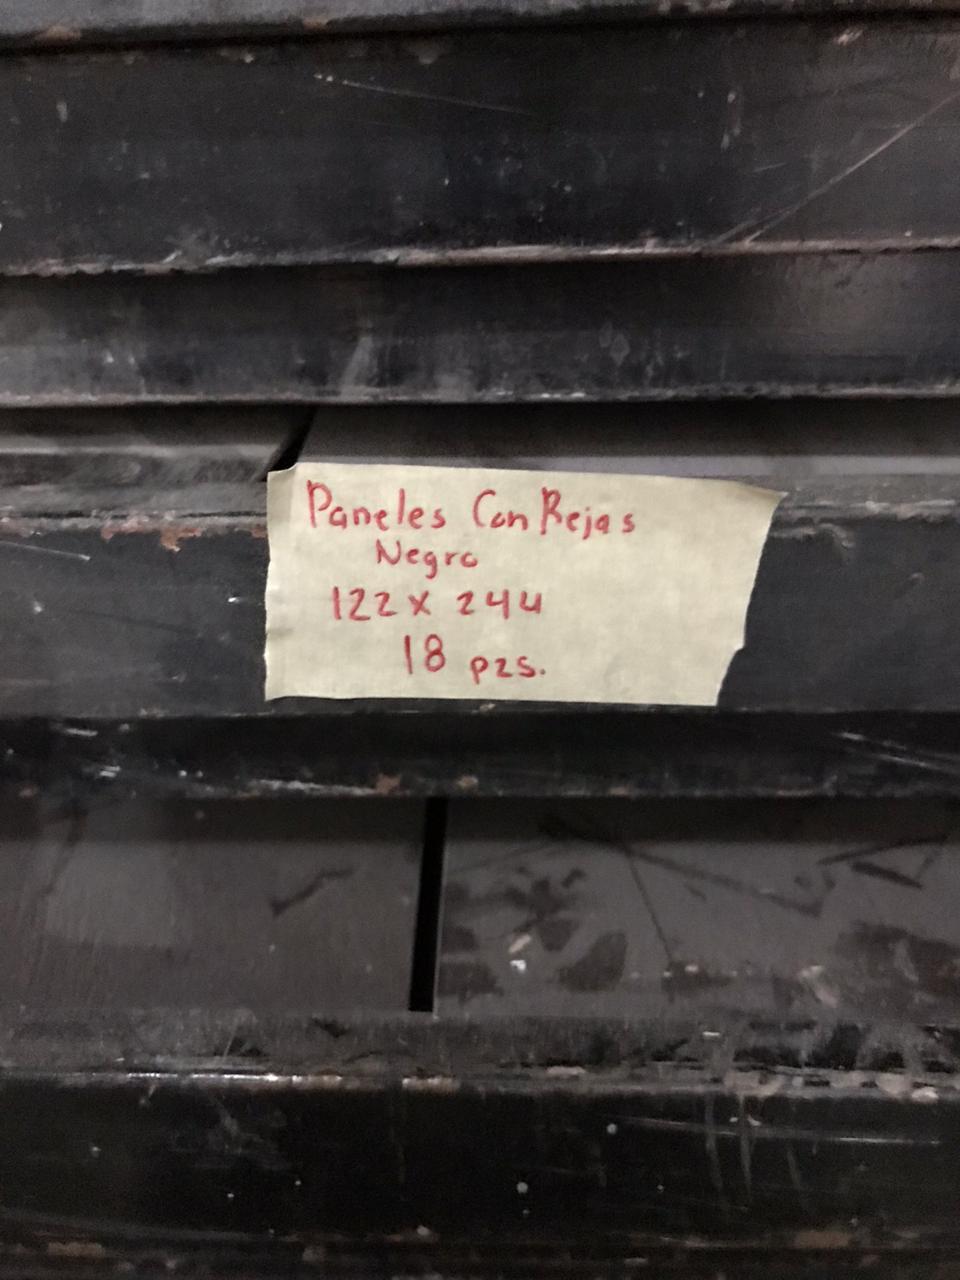 Paneles Con Rejas
Negro
122 x 244
18 pzs.